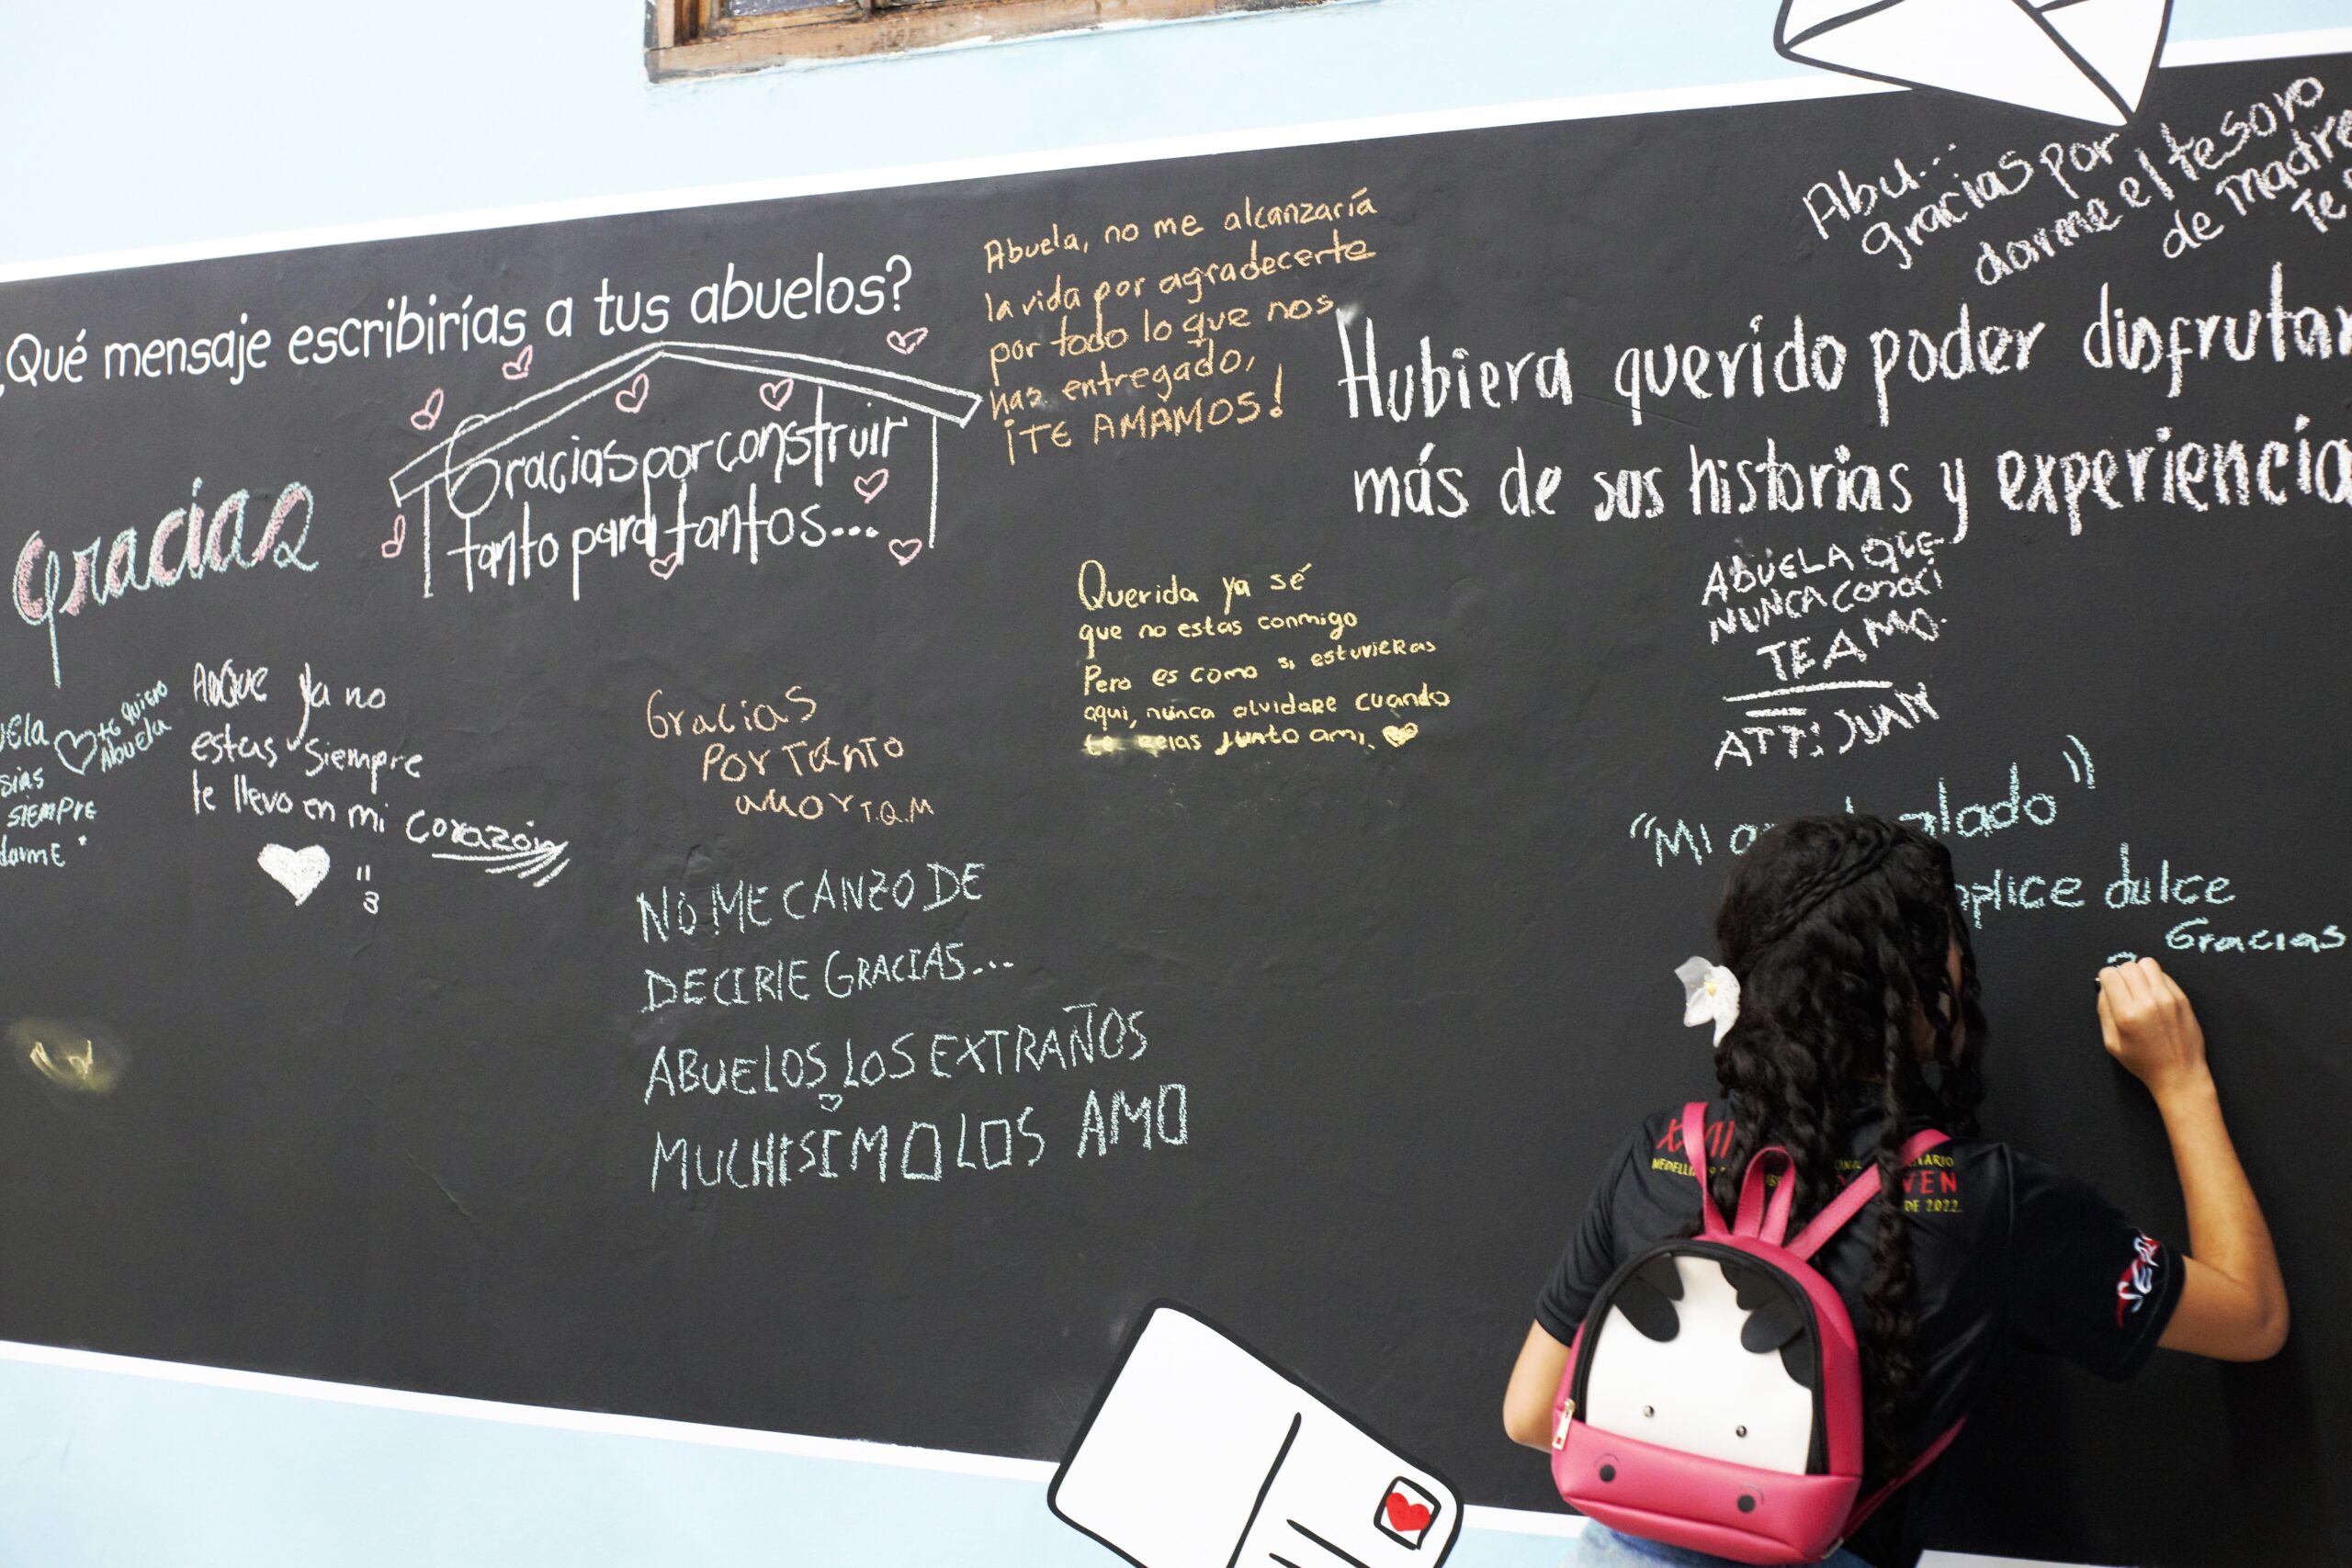 ¿Qué mensaje escribirías a tus abuelos?
Gracias por construir
tanto para tantos...
Gracias
te quiero
Abuela
SIEMPRE
darme
ya no
estas siempre
te llevo en mi corazón
Gracias
Por Tanto
amor T.Q.M
NO ME CANZO DE
DECIRLE GRACIAS...
ABUELOS LOS EXTRAÑOS
MUCHISIMO LOS AMO
Abuela, no me alcanzaría
la vida por agradecerte
por todo lo que nos
has entregado,
¡TE AMAMOS!
Querida ya sé
que no estas conmigo
Pero es como si estuvieras
aqui, nunca olvidare cuando
te reias junto ami.
Abu...
gracias por
darme el tesoro
de madre
Te
Hubiera querido poder disfrutar
más de sus historias y experiencia
ABUELA QUE
NUNCA CONOCÍ
TE AMO.
ATT: JUAN
"Mi alado"
plice dulce
Gracias
XXVII
MEDELLIN
VEN
DE 2022.